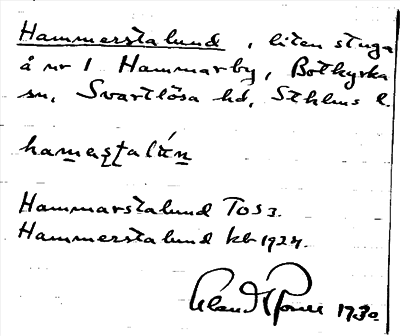 Hammerstalund, liten stuga
å nr 1 Hammarby, Botkyrka
sn, Svartlösa hd, Sthlms l.
Hammarstalund TOS3.
Hammerstalund kb 1924.
1930